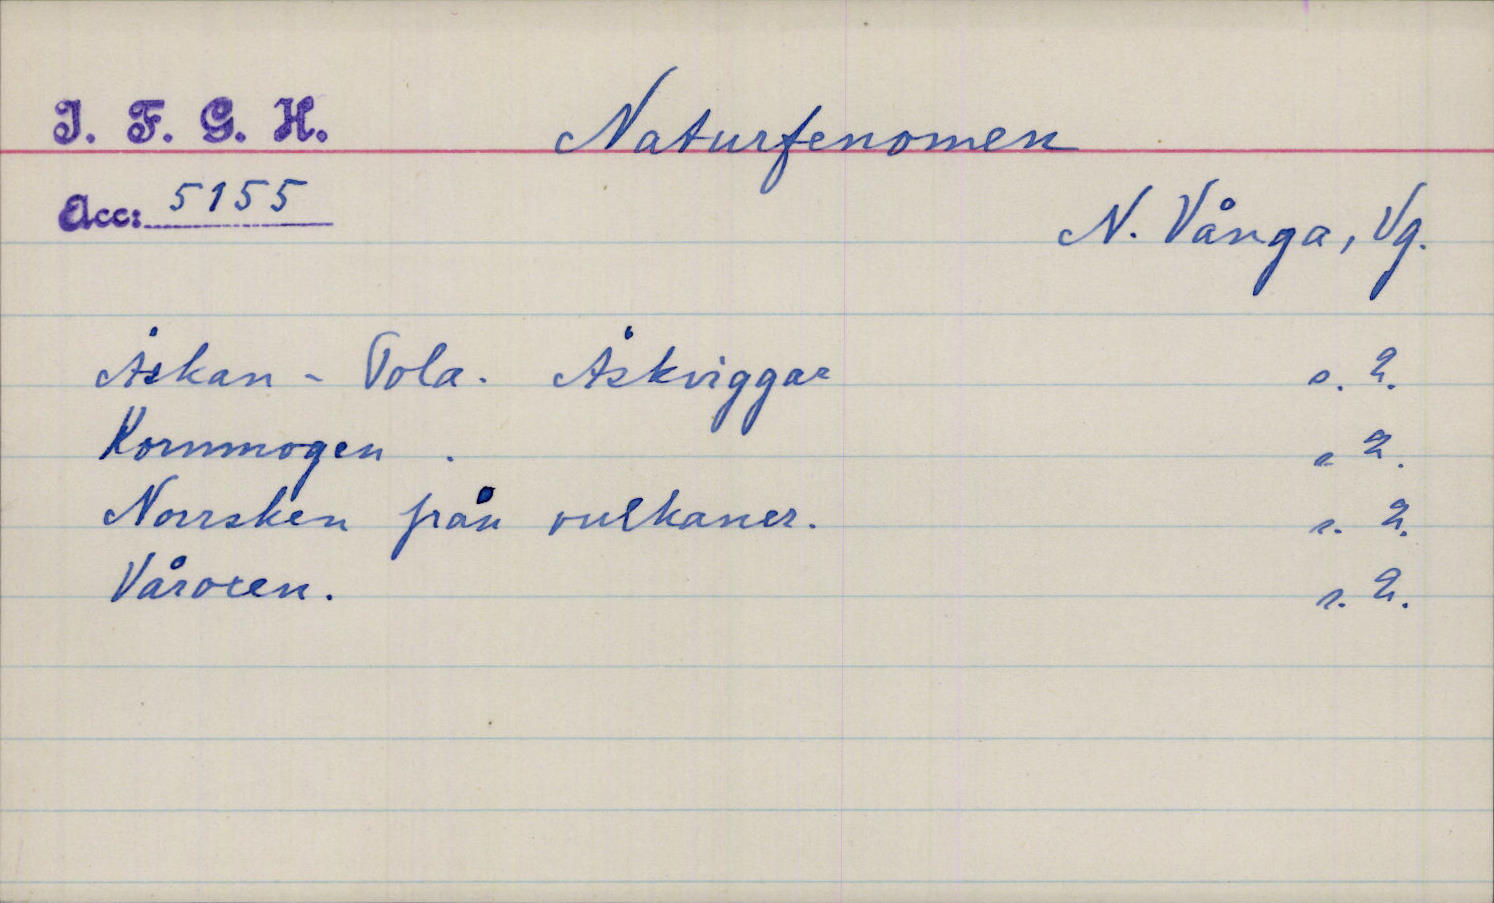 I. F. G. H. Naturfenomen
Acc: 5155
N. Vånga, Vg.
Åskan - Tola. Åskviggar s. 2.
Kornmogen. s 2.
Norrsken från vulkaner. s. 2.
Våroxen. s. 2.